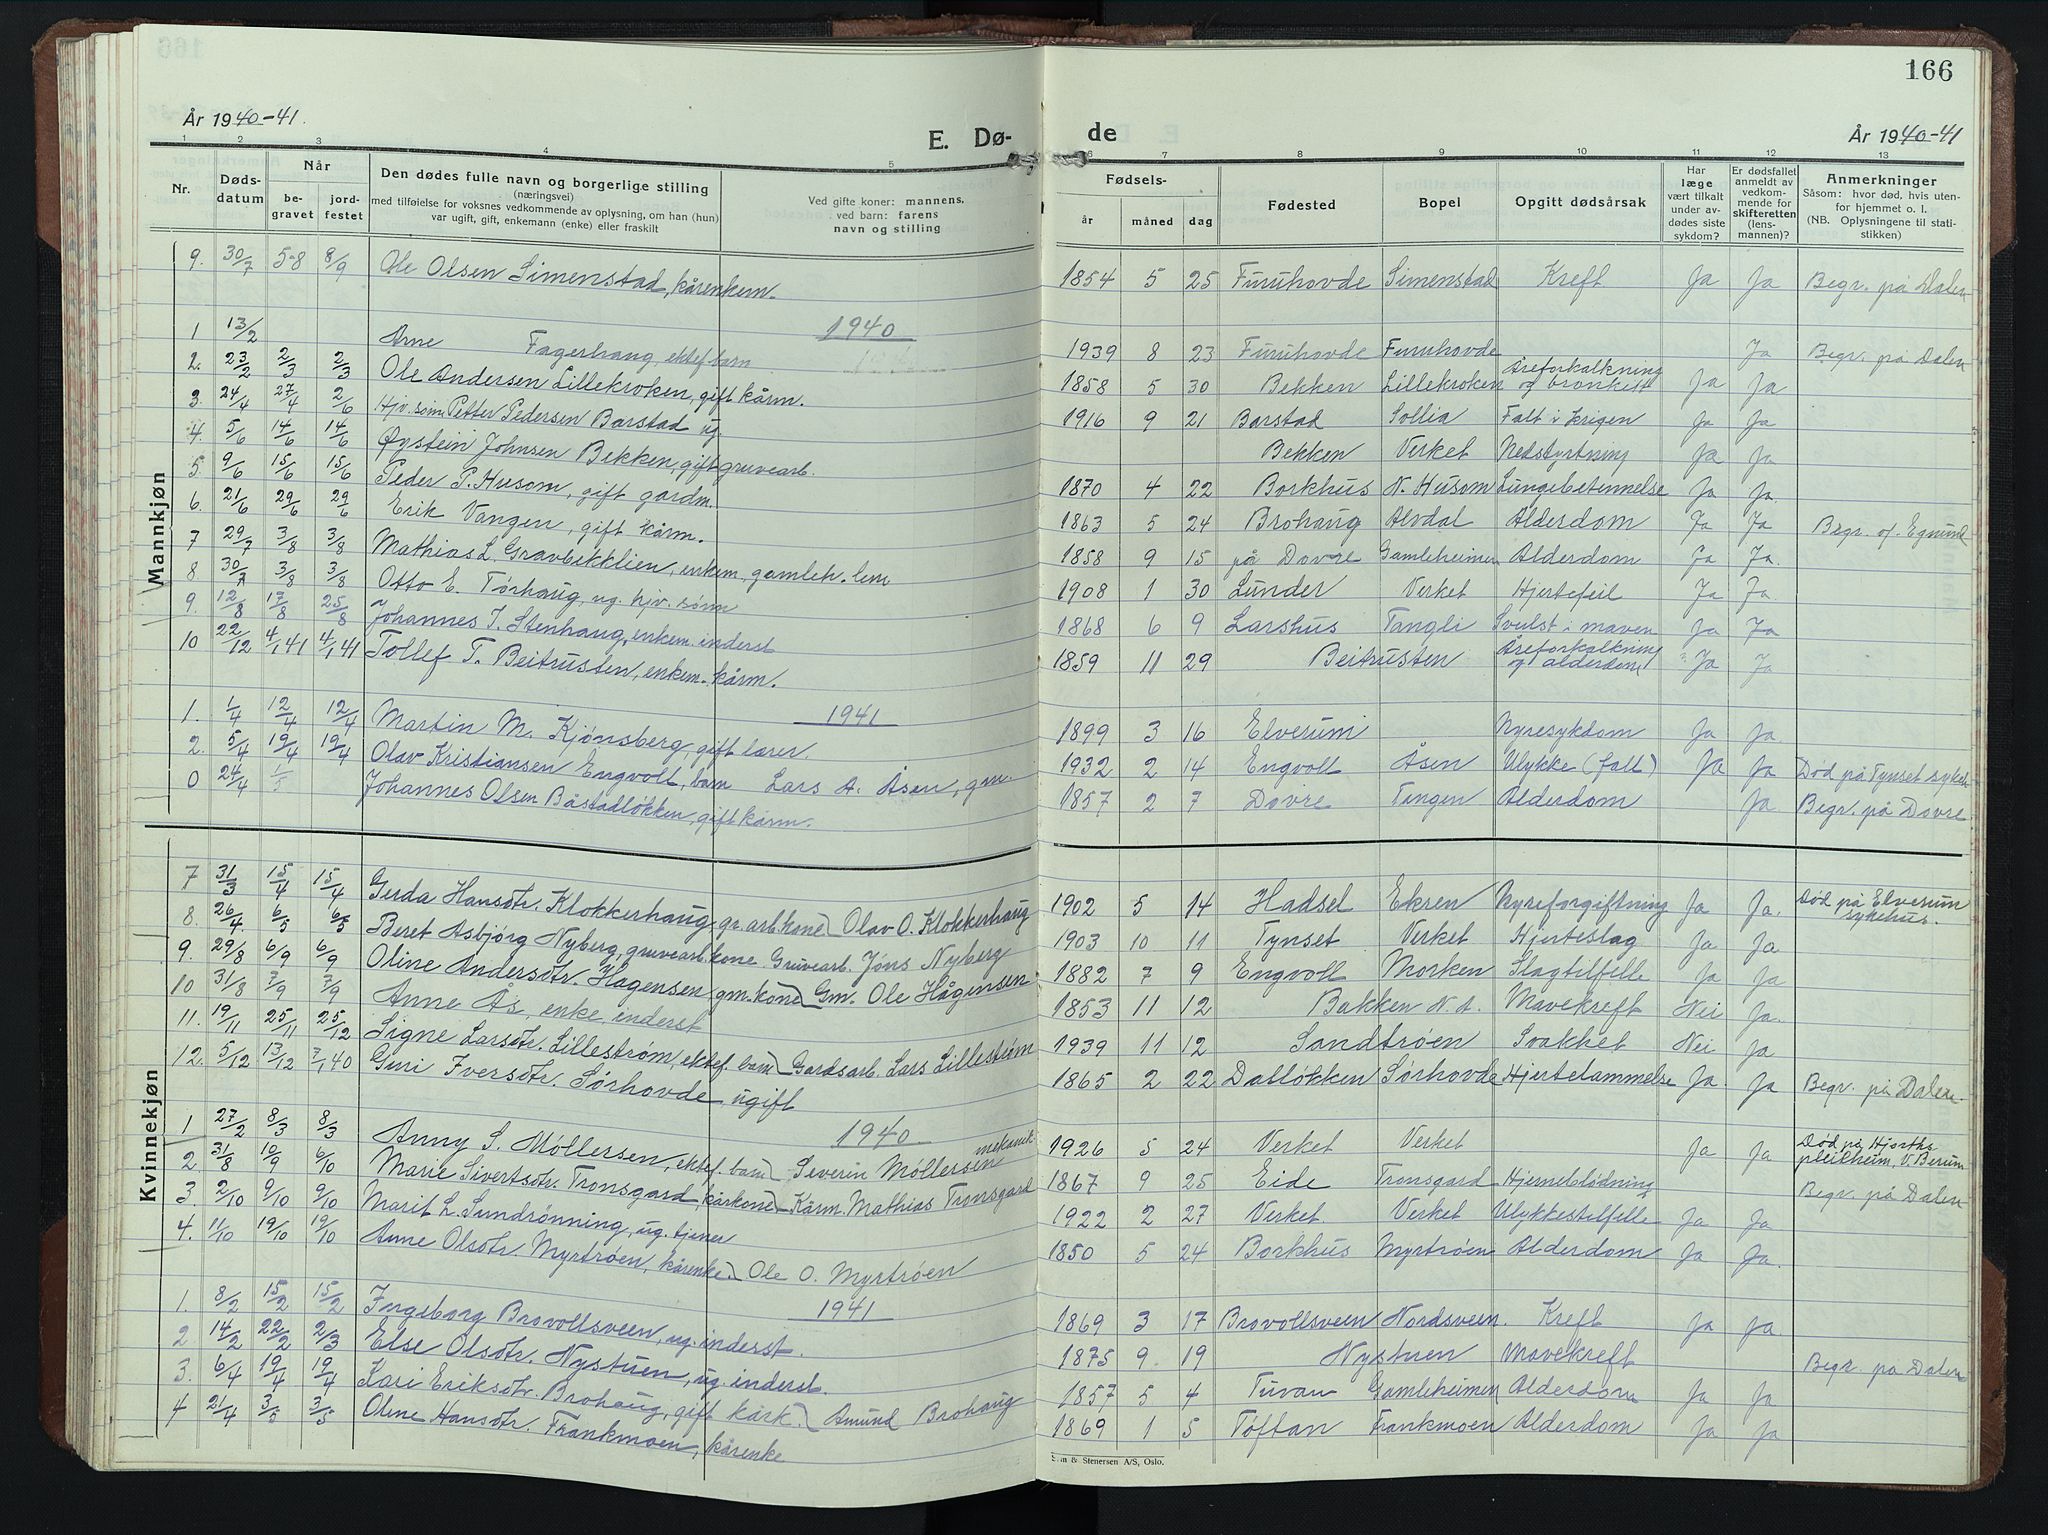 166
År 1940-41.
E. Dø-
de
År 1940-41
1 2 3 4 5 6 7 8 9 10 11 12 13
Nr.
Døds-
datum
Når
be-
gravet
jord-
festet
Den dødes fulle navn og borgerlige stilling
(næringsvei)
med tilføielse for voksnes vedkommende av oplysning, om han (hun)
var ugift, gift, enkemann (enke) eller fraskilt
Ved gifte koner: mannens,
ved barn: farens
navn og stilling
Fødsels-
år måned dag
Fødested
Bopel
Opgitt dødsårsak
Har
læge
vært tilkalt
under av-
dødes siste
sykdom?
Er dødsfallet
anmeldt av
vedkom-
mende for
skifteretten
(lens-
mannen)?
Anmerkninger
Såsom: hvor død, hvis uten-
for hjemmet o. l.
(NB. Oplysningene til stati-
stikken)
Mannkjøn
9. 30/7 5-8 8/9 Ole Olsen Simenstad, kårenkem. 1854 5 25 Furuhovde Simenstad Kreft Ja Ja Begr. på Dalen
1940
1 13/2 Arne Fagerhaug, ektef. barn 1939 8 23 Furuhovde Furuhovde Ja Begr. på Dalen
2. 23/2 2/3 2/3 Ole Andersen Lillekroken, gift kårm. 1858 5 30 Bekken Lillekroken Åreforkalkning og bronkitt Ja Ja
3. 24/4 27/4 2/6 Hjv. sønn Petter Pedersen Barstad ug. 1916 9 21 Barstad Sollia Falt i krigen Ja Ja
4. 5/6 14/6 14/6 Øystein Johnsen Bekken, gift gruvearb. Bekken Verket Nedstyrtning Ja Ja
5. 9/6 15/6 15/6 Peder P. Husom, gift gardm. 1870 4 22 Borkhus N. Husom Lungebetennelse Ja Ja.
6. 21/6 29/6 29/6 Erik Vangen, gift kårm. 1863 5 24 Brohaug Alvdal Alderdom Ja Ja Begr. av. Egnund
7 29/7 3/8 3/8 Mathias L. Gravbekklien, enkem. gamleh. lem 1858 9 15 på Dovre Gamleheimen Alderdom Ja Ja.
8 30/7 3/8 3/8 Otto E. Tørhaug, ug. hjv. sønn 1908 1 30 Lunder Verket Hjertefeil Ja Ja
9. 12/8 17/8 25/8 Johannes I. Stenhaug, enkem. inderst 1868 6 9 Larshus Tangli Svulst i maven Ja Ja
10 22/12 4/1 41 4/1 41 Tollef T. Beitrusten, enkem. kårm. 1859 11 29 Beitrusten Åreforkalkning og alderdom Ja Ja
1941
1. 1/4 12/4 12/4 Martin M. Kjønsberg, gift lærer. 1899 3 16 Elverum Nyresykdom Ja Ja
2. 5/4 19/4 19/4 Olav Kristiansen Engvoll, barn Lars A. Åsen, gm. 1932 2 14 Engvoll Åsen Ulykke (fall) Ja Ja Død på Tynset sykeh.
0 24/4 1/5 Johannes Olsen Båstadløkken, gift kårm. 1857 2 7 Dovre Tangen Alderdom Ja Begr. på Dovre
Kvinnekjøn
7 31/3 15/4 15/4 Gerda Hansdtr. Klokkerhaug, gr. arb. kone Olav O. Klokkerhaug 1902 5 14 Hadsel Ekren Nyreforgiftning Ja Ja. Død på Elverum sykehus.
8. 26/4 6/5 6/5 Beret Asbjørg Nyberg, gruvearb. kone Gruvearb. Jöns Nyberg 1903 10 11 Tynset Verket Hjerteslag Ja Ja
9. 29/8 6/9 6/9 Oline Andersdtr. Hagensen, gm. kone Gm. Ole Hågensen 1882 7 9 Engvoll Morken Slagtilfelle Ja Ja
10 31/8 7/9 7/9 Anne Ås, enke, inderst 1853 11 12 Bakken N. A. Mavekreft Nei Ja.
11. 19/11 25/11 25/12 Signe Larsdtr. Lillestrøm, ektef. barn Gardsarb. Lars Lillestrøm 1939 11 12 Sandtrøen Svakhet Nei Ja
12. 5/12 13/12 7/1 40 Guri Iversdtr. Sørhovde, ugift 1865 2 22 Dalløkken Sørhovde Hjertelammelse Ja. Ja Begr. på Dalen.
1940
1 27/2 8/3 8/3 Anny S. Møllersen, ektef. barn Severin Møllersen mekanik. 1926 5 24 Verket Verket Ja Ja Død på Hjorths pleiheim, V. Berum
2 31/8 10/9 6/10 Marie Sivertsdtr. Tronsgard, kårkone Kårm. Mathias Tronsgard 1867 9 25 Eide Tronsgard Hjerneblødning Begr. på Dalen
3. 2/10 9/10 9/10 Marit L. Sundrønning, ug. tjener 1922 2 27 Verket. Verket Ulykkestilfelle Ja Ja
4. 11/10 19/10 19/10 Anne Olsdtr. Myrtrøen, kårenke Ole O. Myrtrøen 1850 5 24 Borkhus Myrtrøen Alderdom Ja Ja.
1941
1. 8/2 15/2 15/2 Ingeborg Brovollsveen, ug. inderst. 1869 3 17 Brovollsveen Nordsveen. Kreft Ja Ja
2 14/2 22/2 2/3 Else Olsdtr. Nystuen, ug. inderst. 1875 9 19 Nystuen Mavekreft Begr. på Dalen
3. 6/4 19/4 19/4 Kari Eriksdtr. Brohaug, gift kårk. Amund Brohaug 1857 5 4 Tuvan Gamleheimen Alderdom Ja Ja
4 21/4 3/5 3/5 Oline Hansdtr. Frankmoen, kårenke 1869 1 5 Toftan Frankmoen Alderdom Ja Ja
& Stenersen A/S, Oslo.